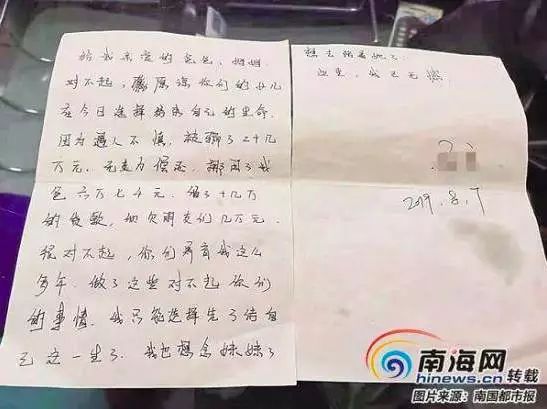 给我亲爱的爸爸、妈妈
对不起，原谅你们的女儿
在今日选择结束自己的生命
因为遇人不慎，被骗了二十几
万元。无克力偿还，挪用了我
爸六万七千元，借了十几万
的贷款，也欠朋友们几万元
很对不起，你们养育我这么
多年，做了这些对不起你们
的事情，我只能选择先了结自
己这一生了，我也想念妹妹了
想去陪着她了
这里，我已无憾
2019.8.7
南海网
hinews.cn 转载
图片来源：南国都市报